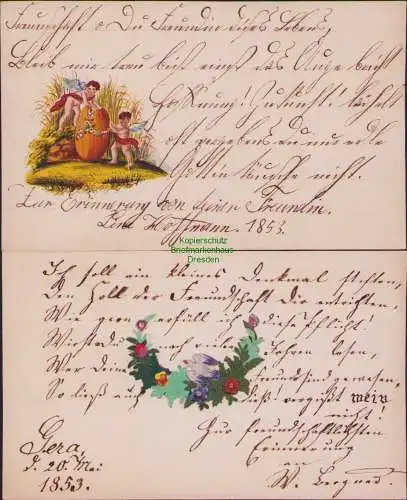 Freundschaft, o Du Freundin dieses Lebens,
Bleib mir treu bis einst das Auge bricht
Hoffnung! Zukunft! lächelt
oft vergebens
Göttin täusche nicht.
Zur Erinnerung von Deiner Freundin
Hoffmann. 1853.
Kopierschutz
Briefmarkenhaus
Dresden
Ich soll ein kleines Denkmal stiften,
Den Zoll der Freundschaft Dir entrichten,
Wie gern erfüll ich diese Pflicht!
Wirst du nach vielen Jahren lesen,
Wer Deine Freundin gewesen,
So ließ auch dieß: vergiß mein
nicht!
Zur freundschaftlichsten
Erinnerung
an
Gera,
d. 20. Mai
1853.
W.